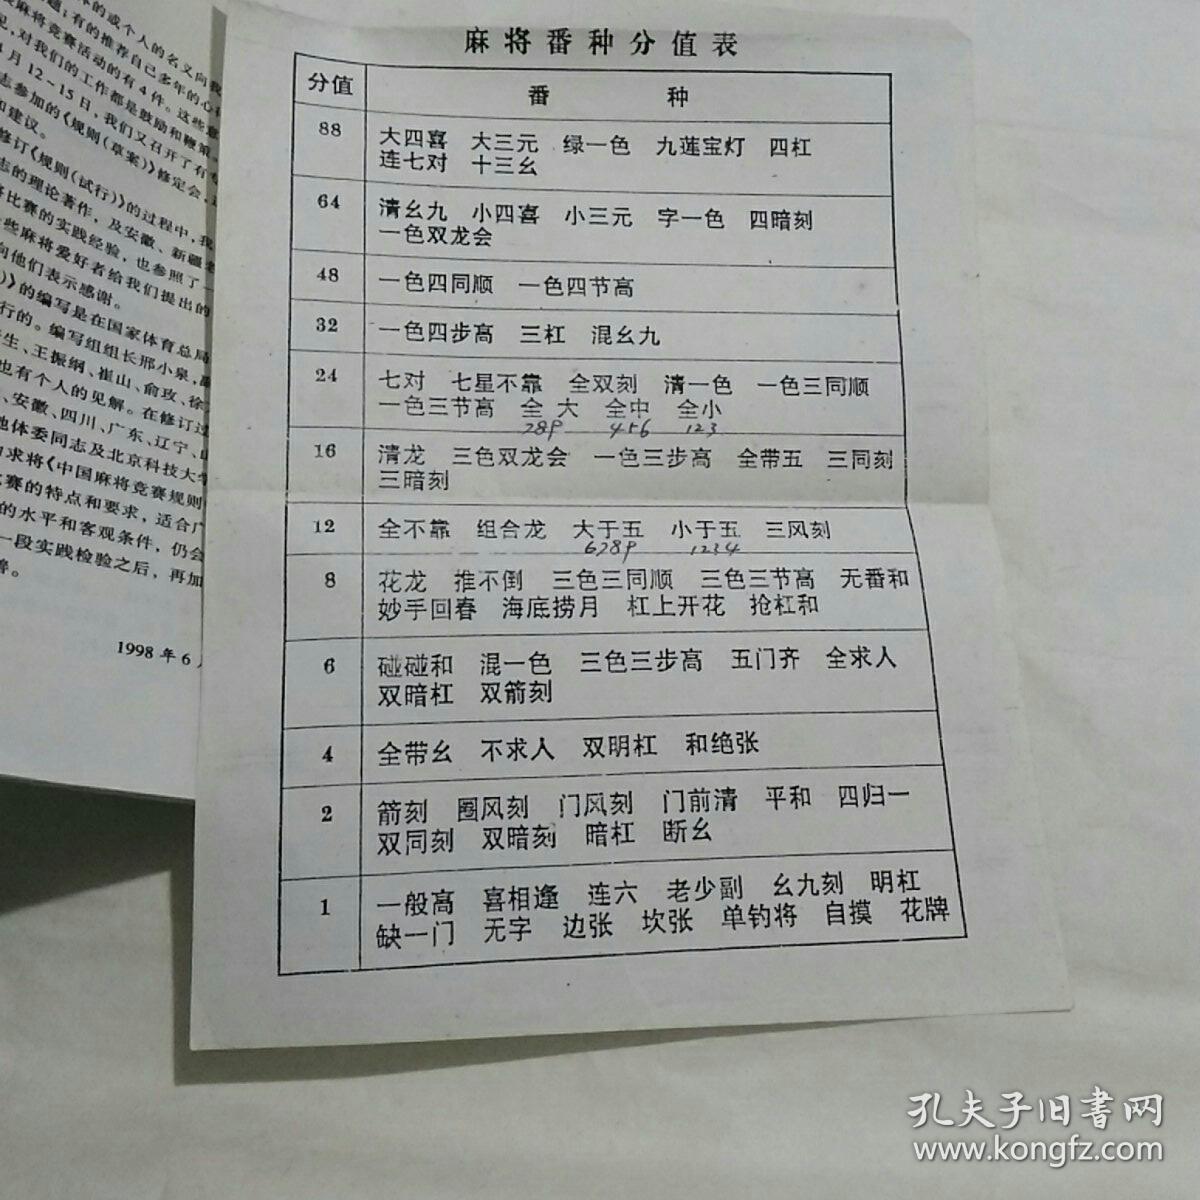 体的或个人的名义向我
题；有的推荐自己多年的心得
麻将竞赛活动的有4件。这些意
见，对我们的工作都是鼓励和鞭策。
月12－15日，我们又召开了有专
志参加的《规则（草案）》修定会，
和建议。
修订《规则（试行）》的过程中，我
志的理论著作，及安徽、新疆
将比赛的实践经验，也参照了一
些麻将爱好者给我们提出的
向他们表示感谢。
》的编写是在国家体育总局
行的。编写组组长邢小泉，副
生、王振纲、崔山、俞玫、徐
也有个人的见解。在修订过
、安徽、四川、广东、辽宁、山
地体委同志及北京科技大学
力求将《中国麻将竞赛规则
竞赛的特点和要求，适合广
的水平和客观条件，仍会
一段实践检验之后，再加
善。
1998年6月
麻将番种分值表
分值 番 种
88 大四喜 大三元 绿一色 九莲宝灯 四杠
连七对 十三幺
64 清幺九 小四喜 小三元 字一色 四暗刻
一色双龙会
48 一色四同顺 一色四节高
32 一色四步高 三杠 混幺九
24 七对 七星不靠 全双刻 清一色 一色三同顺
一色三节高 全大 全中 全小
789 456 123
16 清龙 三色双龙会 一色三步高 全带五 三同刻
三暗刻
12 全不靠 组合龙 大于五 小于五 三风刻
6789 1234
8 花龙 推不倒 三色三同顺 三色三节高 无番和
妙手回春 海底捞月 杠上开花 抢杠和
6 碰碰和 混一色 三色三步高 五门齐 全求人
双暗杠 双箭刻
4 全带幺 不求人 双明杠 和绝张
2 箭刻 圈风刻 门风刻 门前清 平和 四归一
双同刻 双暗刻 暗杠 断幺
1 一般高 喜相逢 连六 老少副 幺九刻 明杠
缺一门 无字 边张 坎张 单钓将 自摸 花牌
孔夫子旧书网
www.kongfz.com